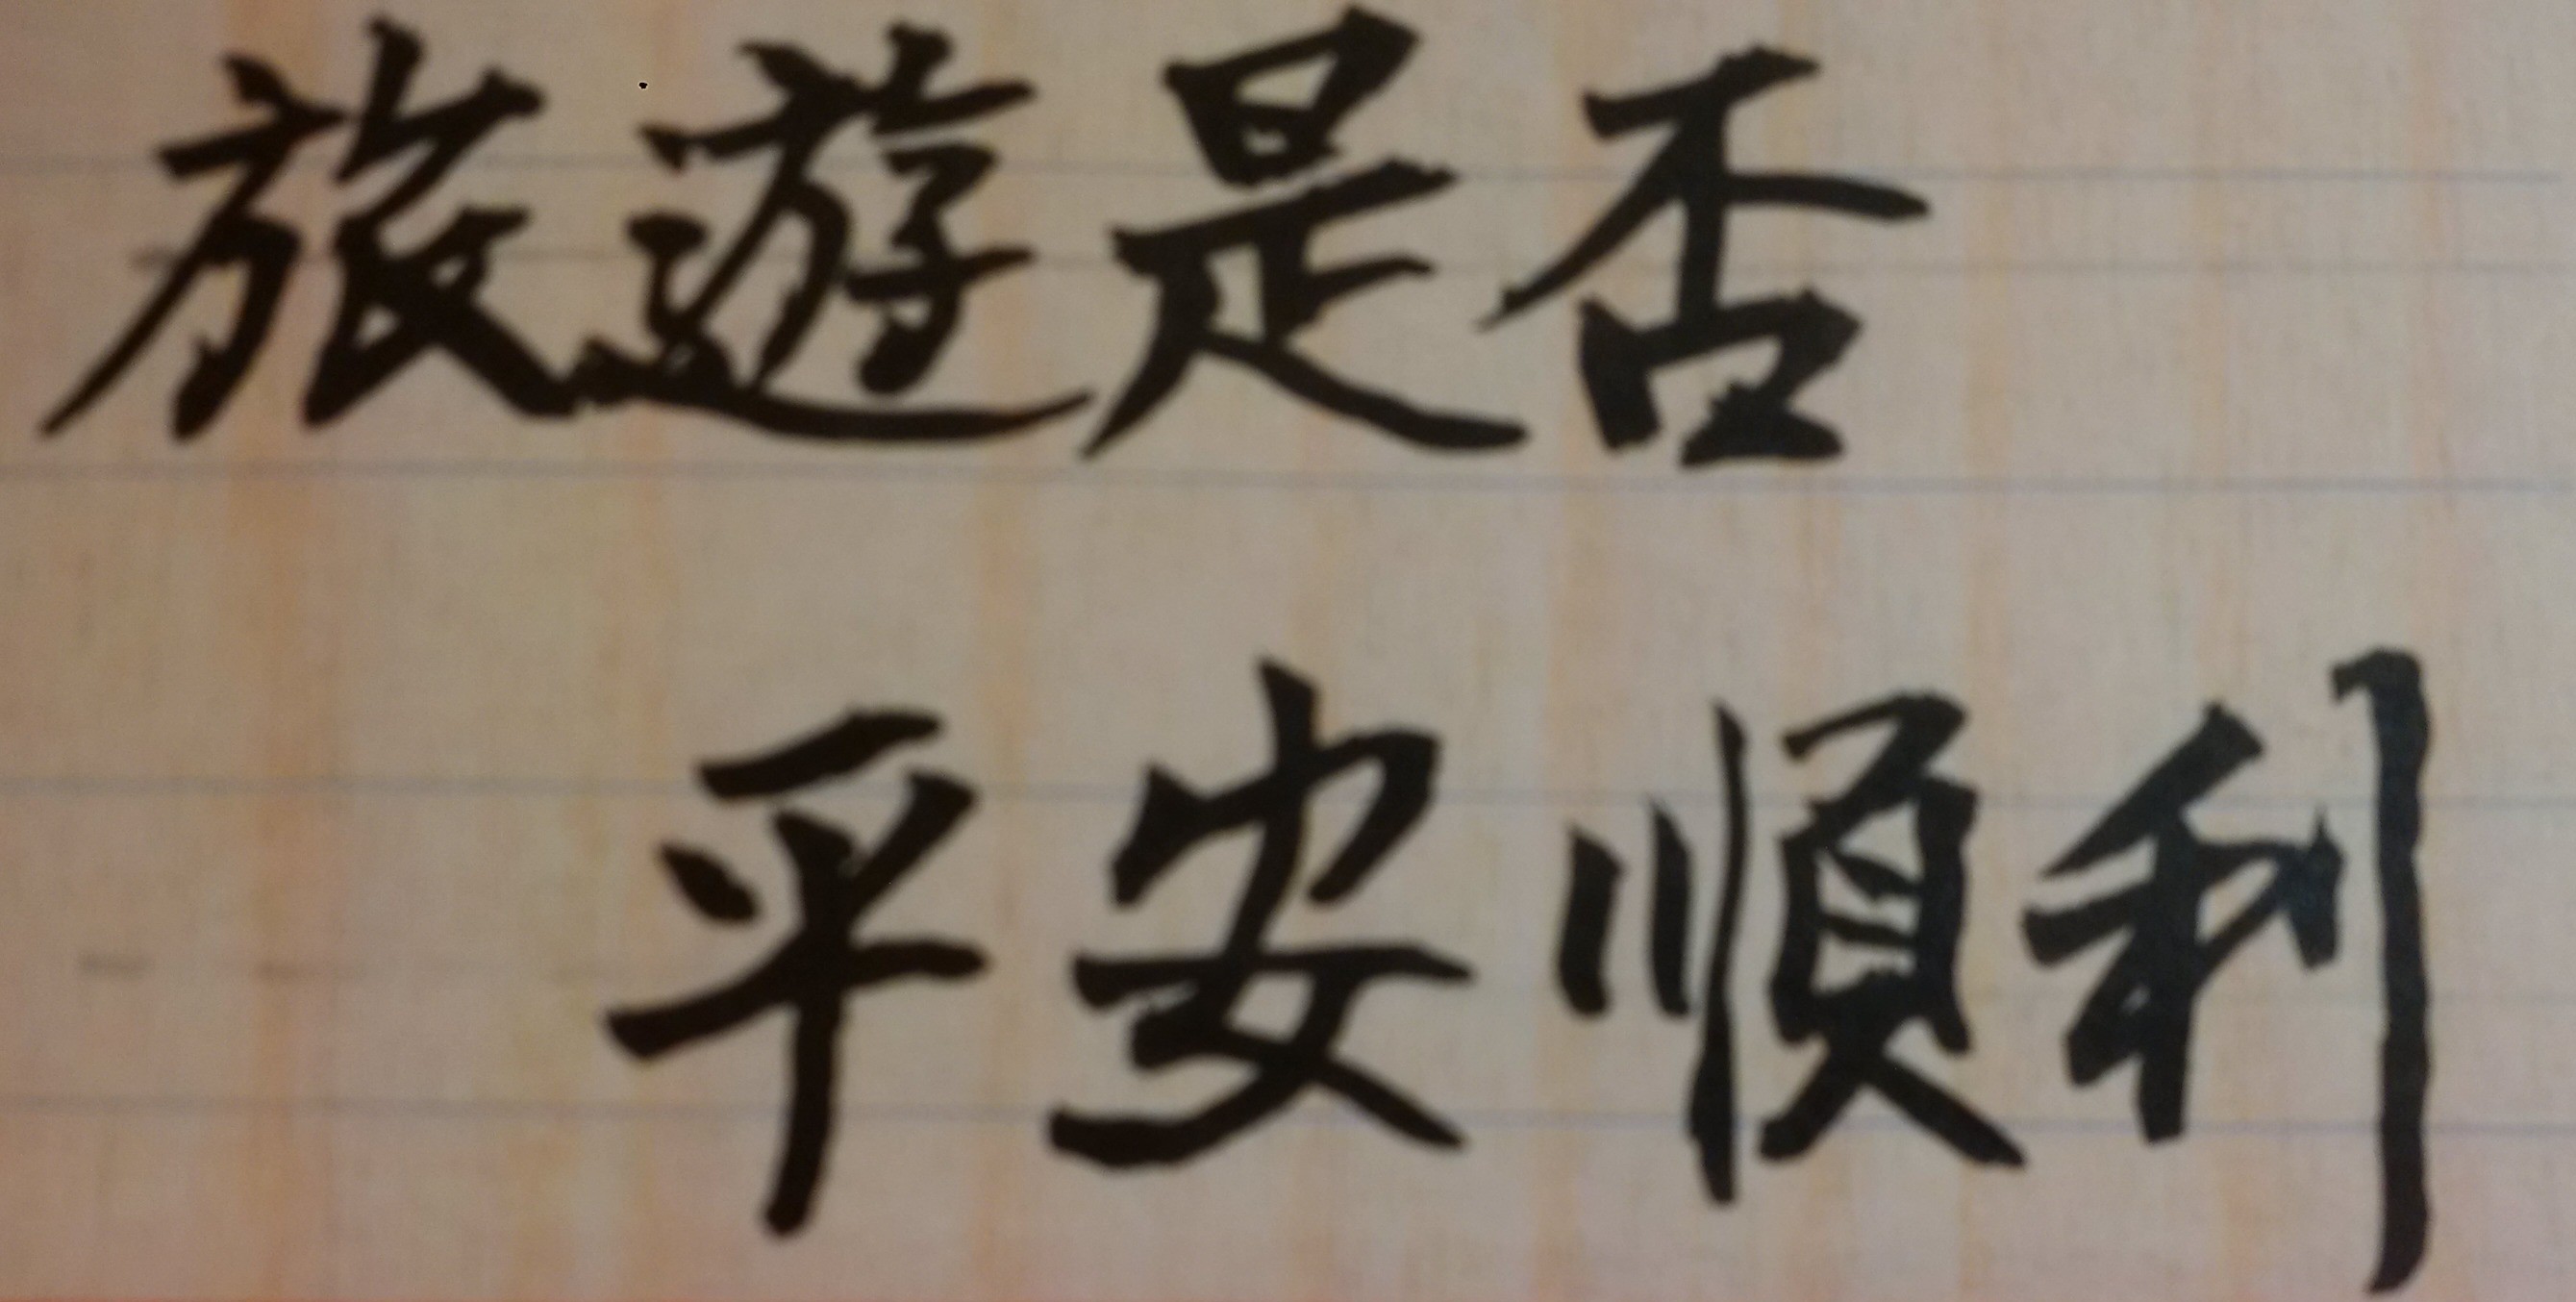 旅遊是否
平安順利